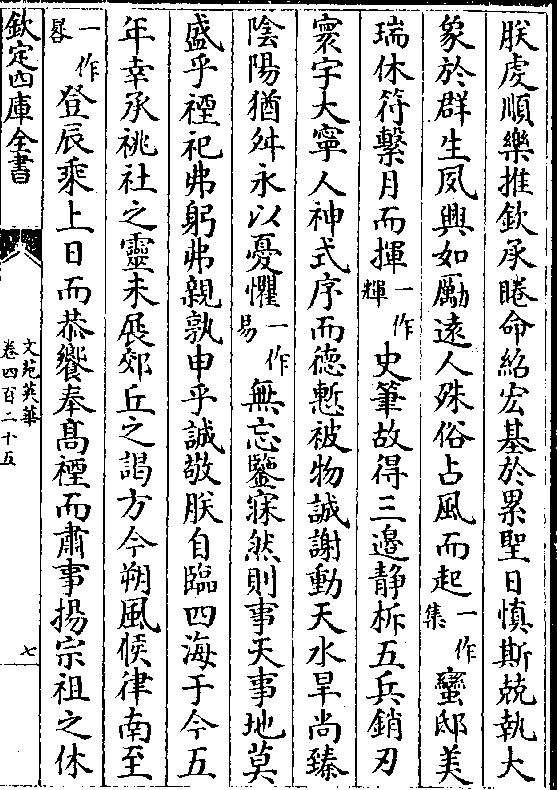 朕虔順樂推欽承睠命紹宏基於累聖日慎斯兢執大
象於群生夙興如勵遠人殊俗占風而起一作集蠻邸美
瑞休符繫月而揮一作輝史筆故得三邊静柝五兵銷刃
寰宇大寧人神式序而德慙被物誠謝動天水旱尚臻
陰陽猶舛永以憂懼一作易無忘鑒寐然則事天事地莫
盛乎禋祀弗躬弗親孰申乎誠敬朕自臨四海于今五
年幸承祧社之靈未展郊丘之謁方今朔風候律南至
一作晷登辰乘上日而恭饗奉髙禋而肅事揚宗祖之休
欽定四庫全書
文苑英華
卷四百二十五
七